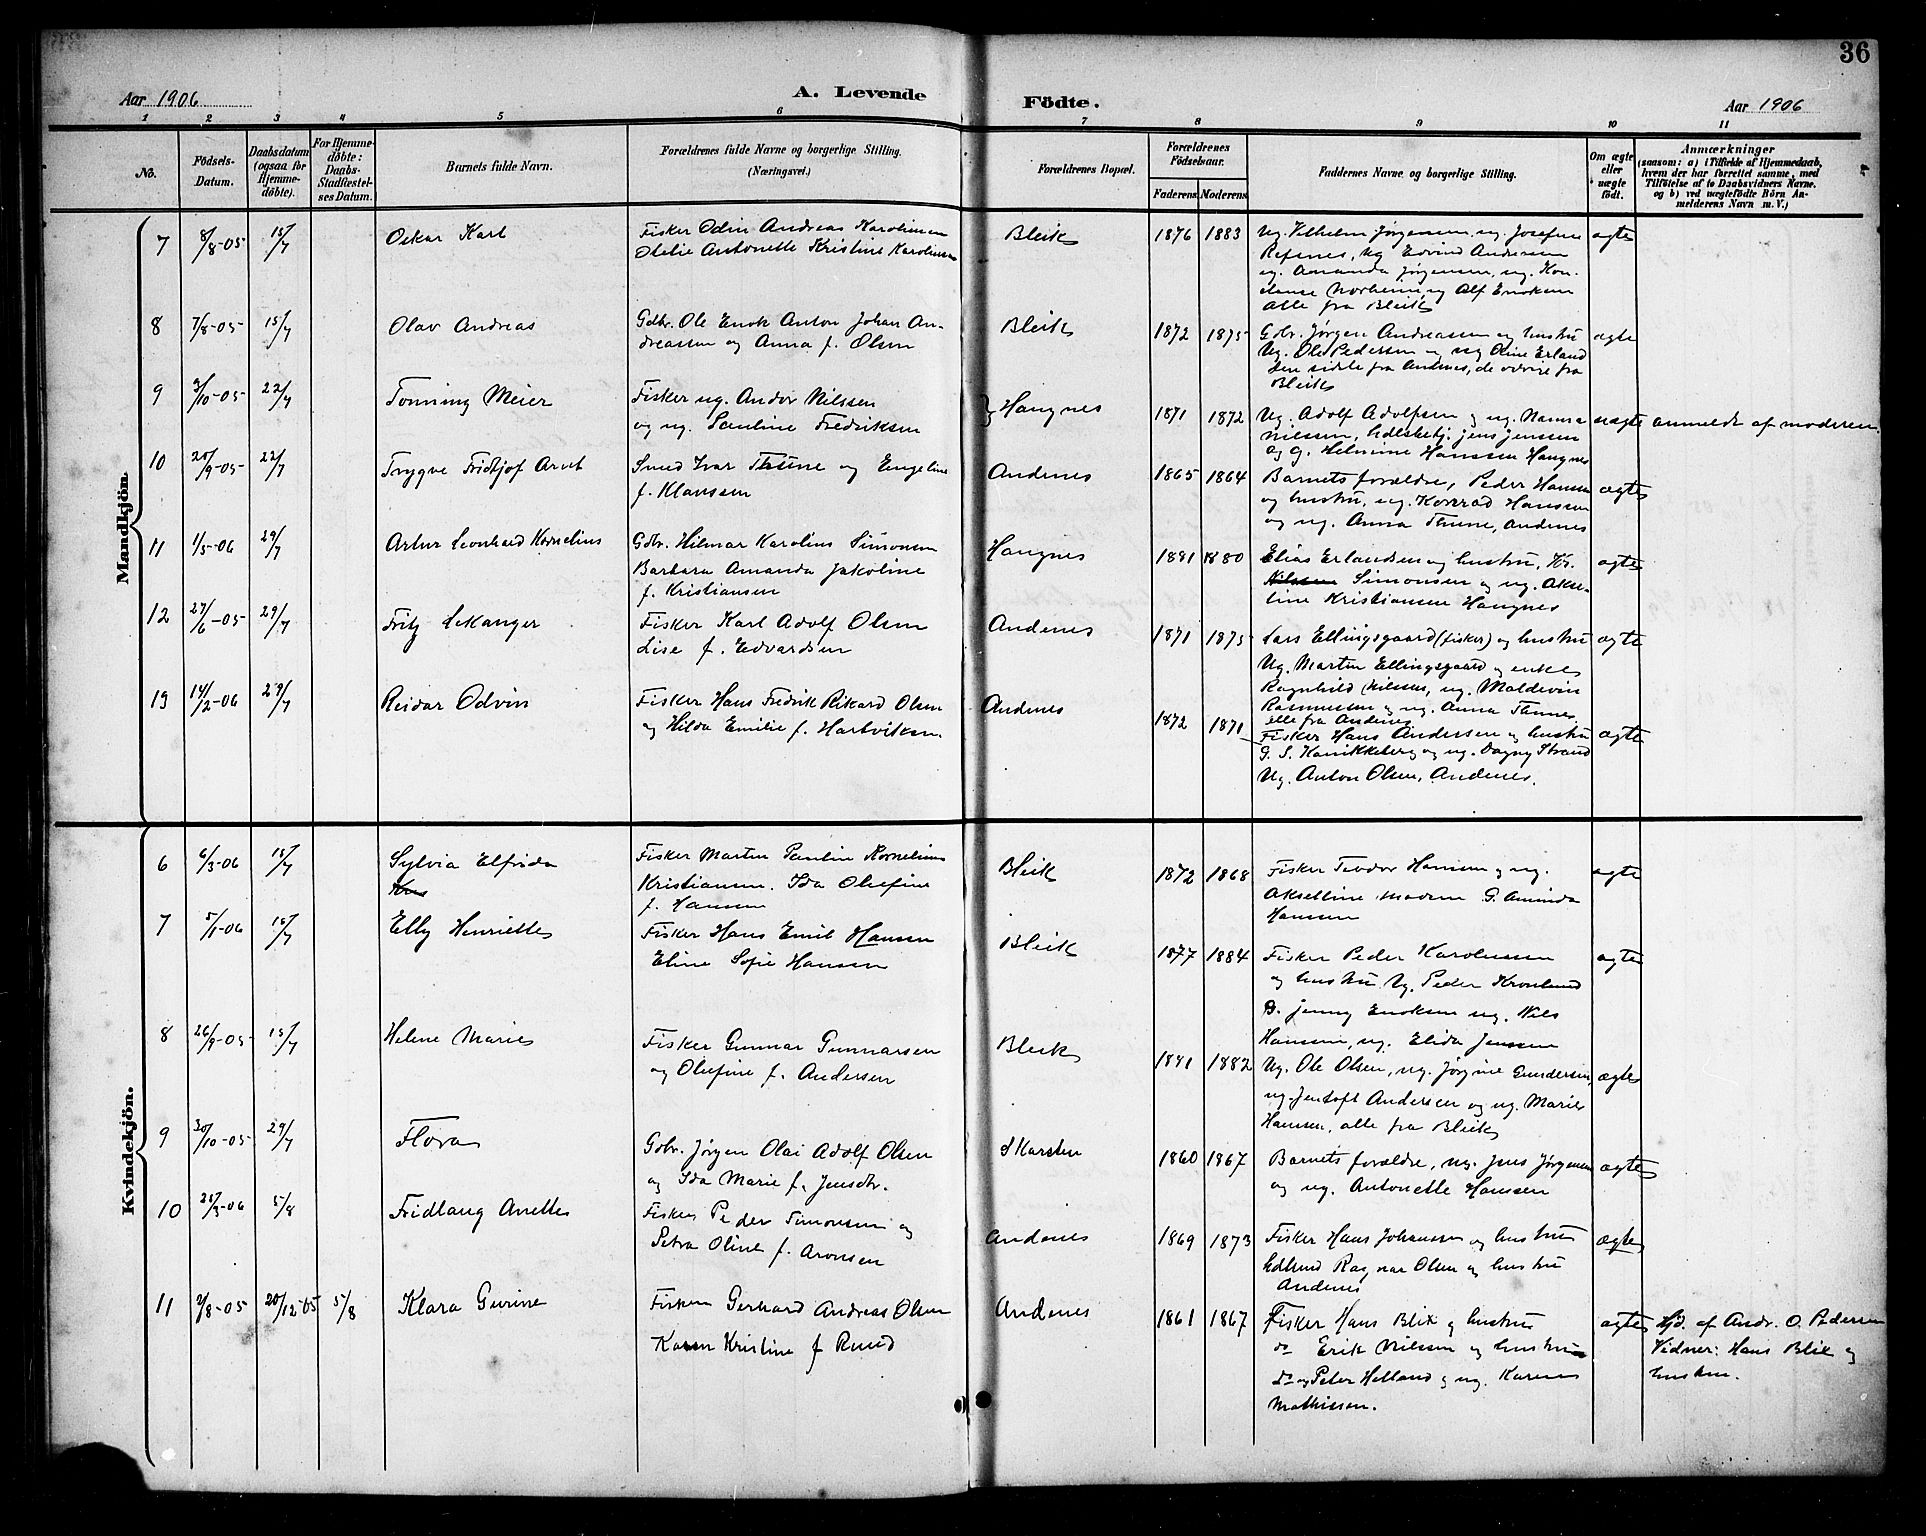 36
Aar 1906 A. Levende Födte. Aar 1906
1 2 3 4 5 6 7 8 9 10 11
No. Födsels-Datum. Daabsdatum (ogsaa for Hjemme-döbte). For Hjemme-döbte: Daabs-Stadfæstel-ses Datum. Barnets fulde Navn. Forældrenes fulde Navne og borgerlige Stilling. (Næringsvei.) Forældrenes Bopæl. Forældrenes Födselsaar. Faderens Moderens Faddernes Navne og borgerlige Stilling. Om ægte eller uægte födt. Anmærkninger
(saasom: a) i Tilfælde af Hjemmedaab,
hvem der har forrettet samme, med
Tilföielse af to Daabsvidners Navne.
og b) ved uægtefödte Börn An-
melderens Navn m. V.)
Mandkjön.
7 8/8-05 15/7 Oskar Karl Fisker Odin Andreas Karolinsen Bleik 1876 1883 Ug. Vilhelm Jørgensen, ug. Josefine ægte
Otelie Antonette Kristine Karolinsen Refsnes, Ug Edvind Andersen
ug. Amanda Jørgensen, ug. Kon-
stanse Norheim, ug Alf Enoksen
alle fra Bleik
8 7/8-05 15/7 Olav Andreas Gdbr. Ole Enok Anton Johan An- Bleik 1872 1875 Gbr. Jørgen Andreassen og hustru ægte
dreassen og Anna f. Olsen Ug. Ole Pedersen og ug Oline Erland
den sidste fra Andenes, de øvrige fra
Bleik
9 3/10-05 22/7 Tonning Meier Fisker ug. Andor Nilssen Haugnes 1871 1872 Ug. Adolf Adolfsen og ug. Nanna uægte anmeldt af moderen.
og ug. Pauline Fredriksen Nilssen, Jens Jenssen
og g. Helmine Hanssen Haugnes
10 20/9-05 22/7 Trygve Fridtjof Arnt Smed Ivar Thune og Engeline Andenes 1865 1864 Barnets forældre, Peder Hansen ægte
f. Klaussen og hustru, ug. Konrad Hanssen
og ug. Anna Thune, Andenes
11 1/5-06 29/7 Artur Leonhard Kornelius Gdbr. Hilmar Karolius Simonsen Haugnes 1881 1880 Elias Erlandsen og hustru, Kr. ægte
Barbara Amanda Jakoline Nilssen Simonsen og ug. Akse-
f. Kristiansen line Kristiansen Haugnes
12 27/6-05 29/7 Fritz Lekanger Fisker Karl Adolf Olsen Andenes 1871 1875 Lars Ellingsgaard (fisker) og hustru ægte
Lise f. Edvardsen Ug. Martin Ellingsgaard og enke
Ragnhild Nilssen, ug. Maldevin
Rasmussen og ug. Anna Thunes
alle fra Andenes
13 14/2-06 29/7 Reidar Odvin Fisker Hans Fredrik Rikard Olsen Andenes 1872 1871 Fisker Hans Andersen og hustru ægte
og Hilda Emilie f. Hartviksen. G. S. Kanikkeberg og ug. Dagny Strand
Ug. Anton Olsen, Andenes.
Kvindekjön.
6 6/3-06 15/7 Sylvia Elfrida Fisker Martin Paulin Kornelius Bleik 1872 1868 Fisker Teodor Hansen og ug. ægte
Kris Kristiansen. Ida Olufine Akselline, modern G. Aminda
f. Hansen Hanssen
7 5/1-06 15/7 Elly Henriette Fisker Hans Emil Hansen Bleik 1877 1884 Fisker Peder Karolussen ægte
Eline Sofie Hansen og hustru Ug. Peder Kronlund
B. Jenny Enoksen ug. Nils
Hanssen, ug. Elida Jenssen
8 26/9-05 15/7 Helene Marie Fisker Gunnar Gunnarsen Bleik 1881 1882 Ug. Ole Olsen, ug. Jørgine Gundersen, ægte
og Olufine f. Andersen ug. Jentoft Andersen og ug. Marie
Hansen, alle fra Bleik
9 30/10-05 29/7 Flora Gdbr. Jørgen Olai Adolf Olsen Skarsten 1860 1867 Barnets forældre, ug. Jens Jørgensen ægte
og Ida Marie f. Jensdtr. og ug. Antonette Hansen
10 25/3-06 5/8 Fridlaug Anette Fisker Peder Simonsen og Andenes 1869 1873 Fisker Hans Johansen og hustru ægte
Petra Oline f. Aronsen Edlund Ragnar Olsen og hustru
Andenes
11 2/8-05 20/12-05 5/8 Klara Gurine Fisker Gerhard Andreas Olsen Andenes 1861 1867 Fisker Hans Blix og hustru ægte Hjd. af Andr. O. Pedersen
Karen Kristine f Ruud do Erik Nilssen og hustru Vidner: Hans Blix og
do og Peter Helland og ug. Karen hustru.
Mathissen.